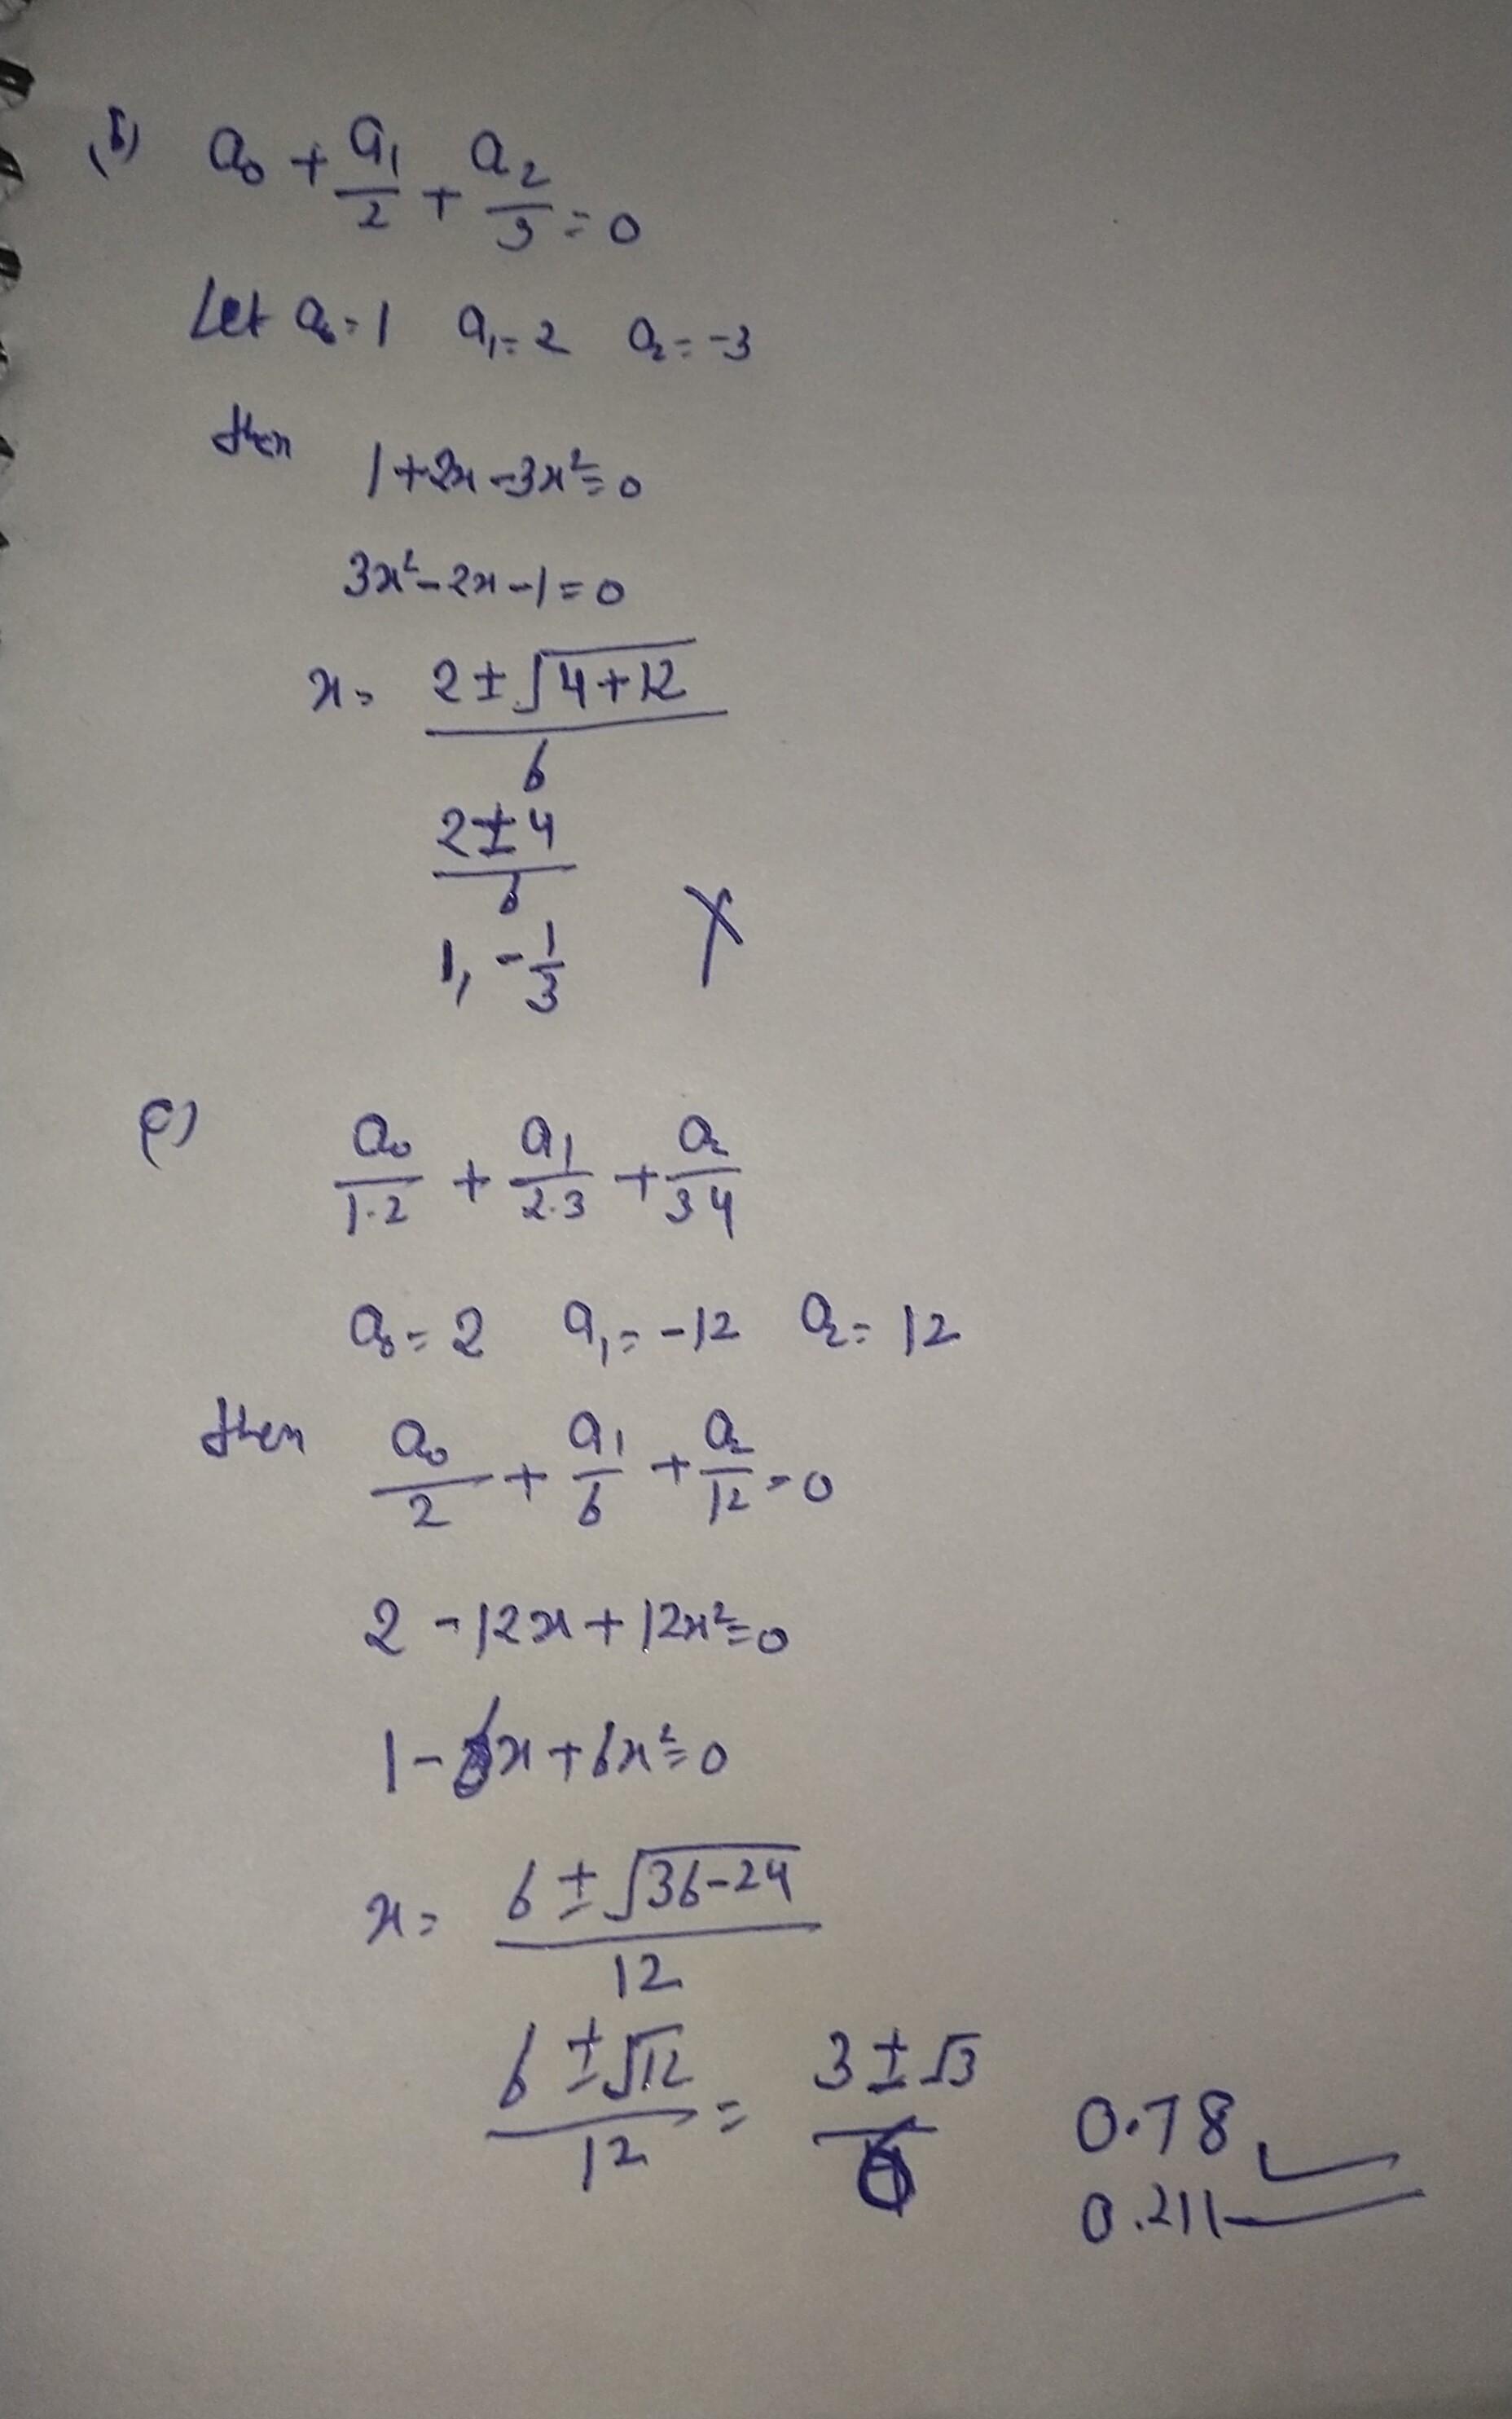 (b) a₀ + a₁/2 + a₂/3 = 0
Let a₀ = 1 a₁ = 2 a₂ = -3
then 1 + 2x - 3x² = 0
3x² - 2x - 1 = 0
x = (2 ± √(4+12))/6
(2 ± 4)/6
1, -1/3 X
(c) a₀/1·2 + a₁/2·3 + a₂/3 4
a₀ = 2 a₁ = -12 a₂ = 12
then a₀/2 + a₁/6 + a₂/12 = 0
2 - 12x + 12x² = 0
1 - 6x + 6x² = 0
x = (6 ± √(36-24))/12
(6 ± √12)/12 = (3 ± √3)/6 0.78 ✓
0.211